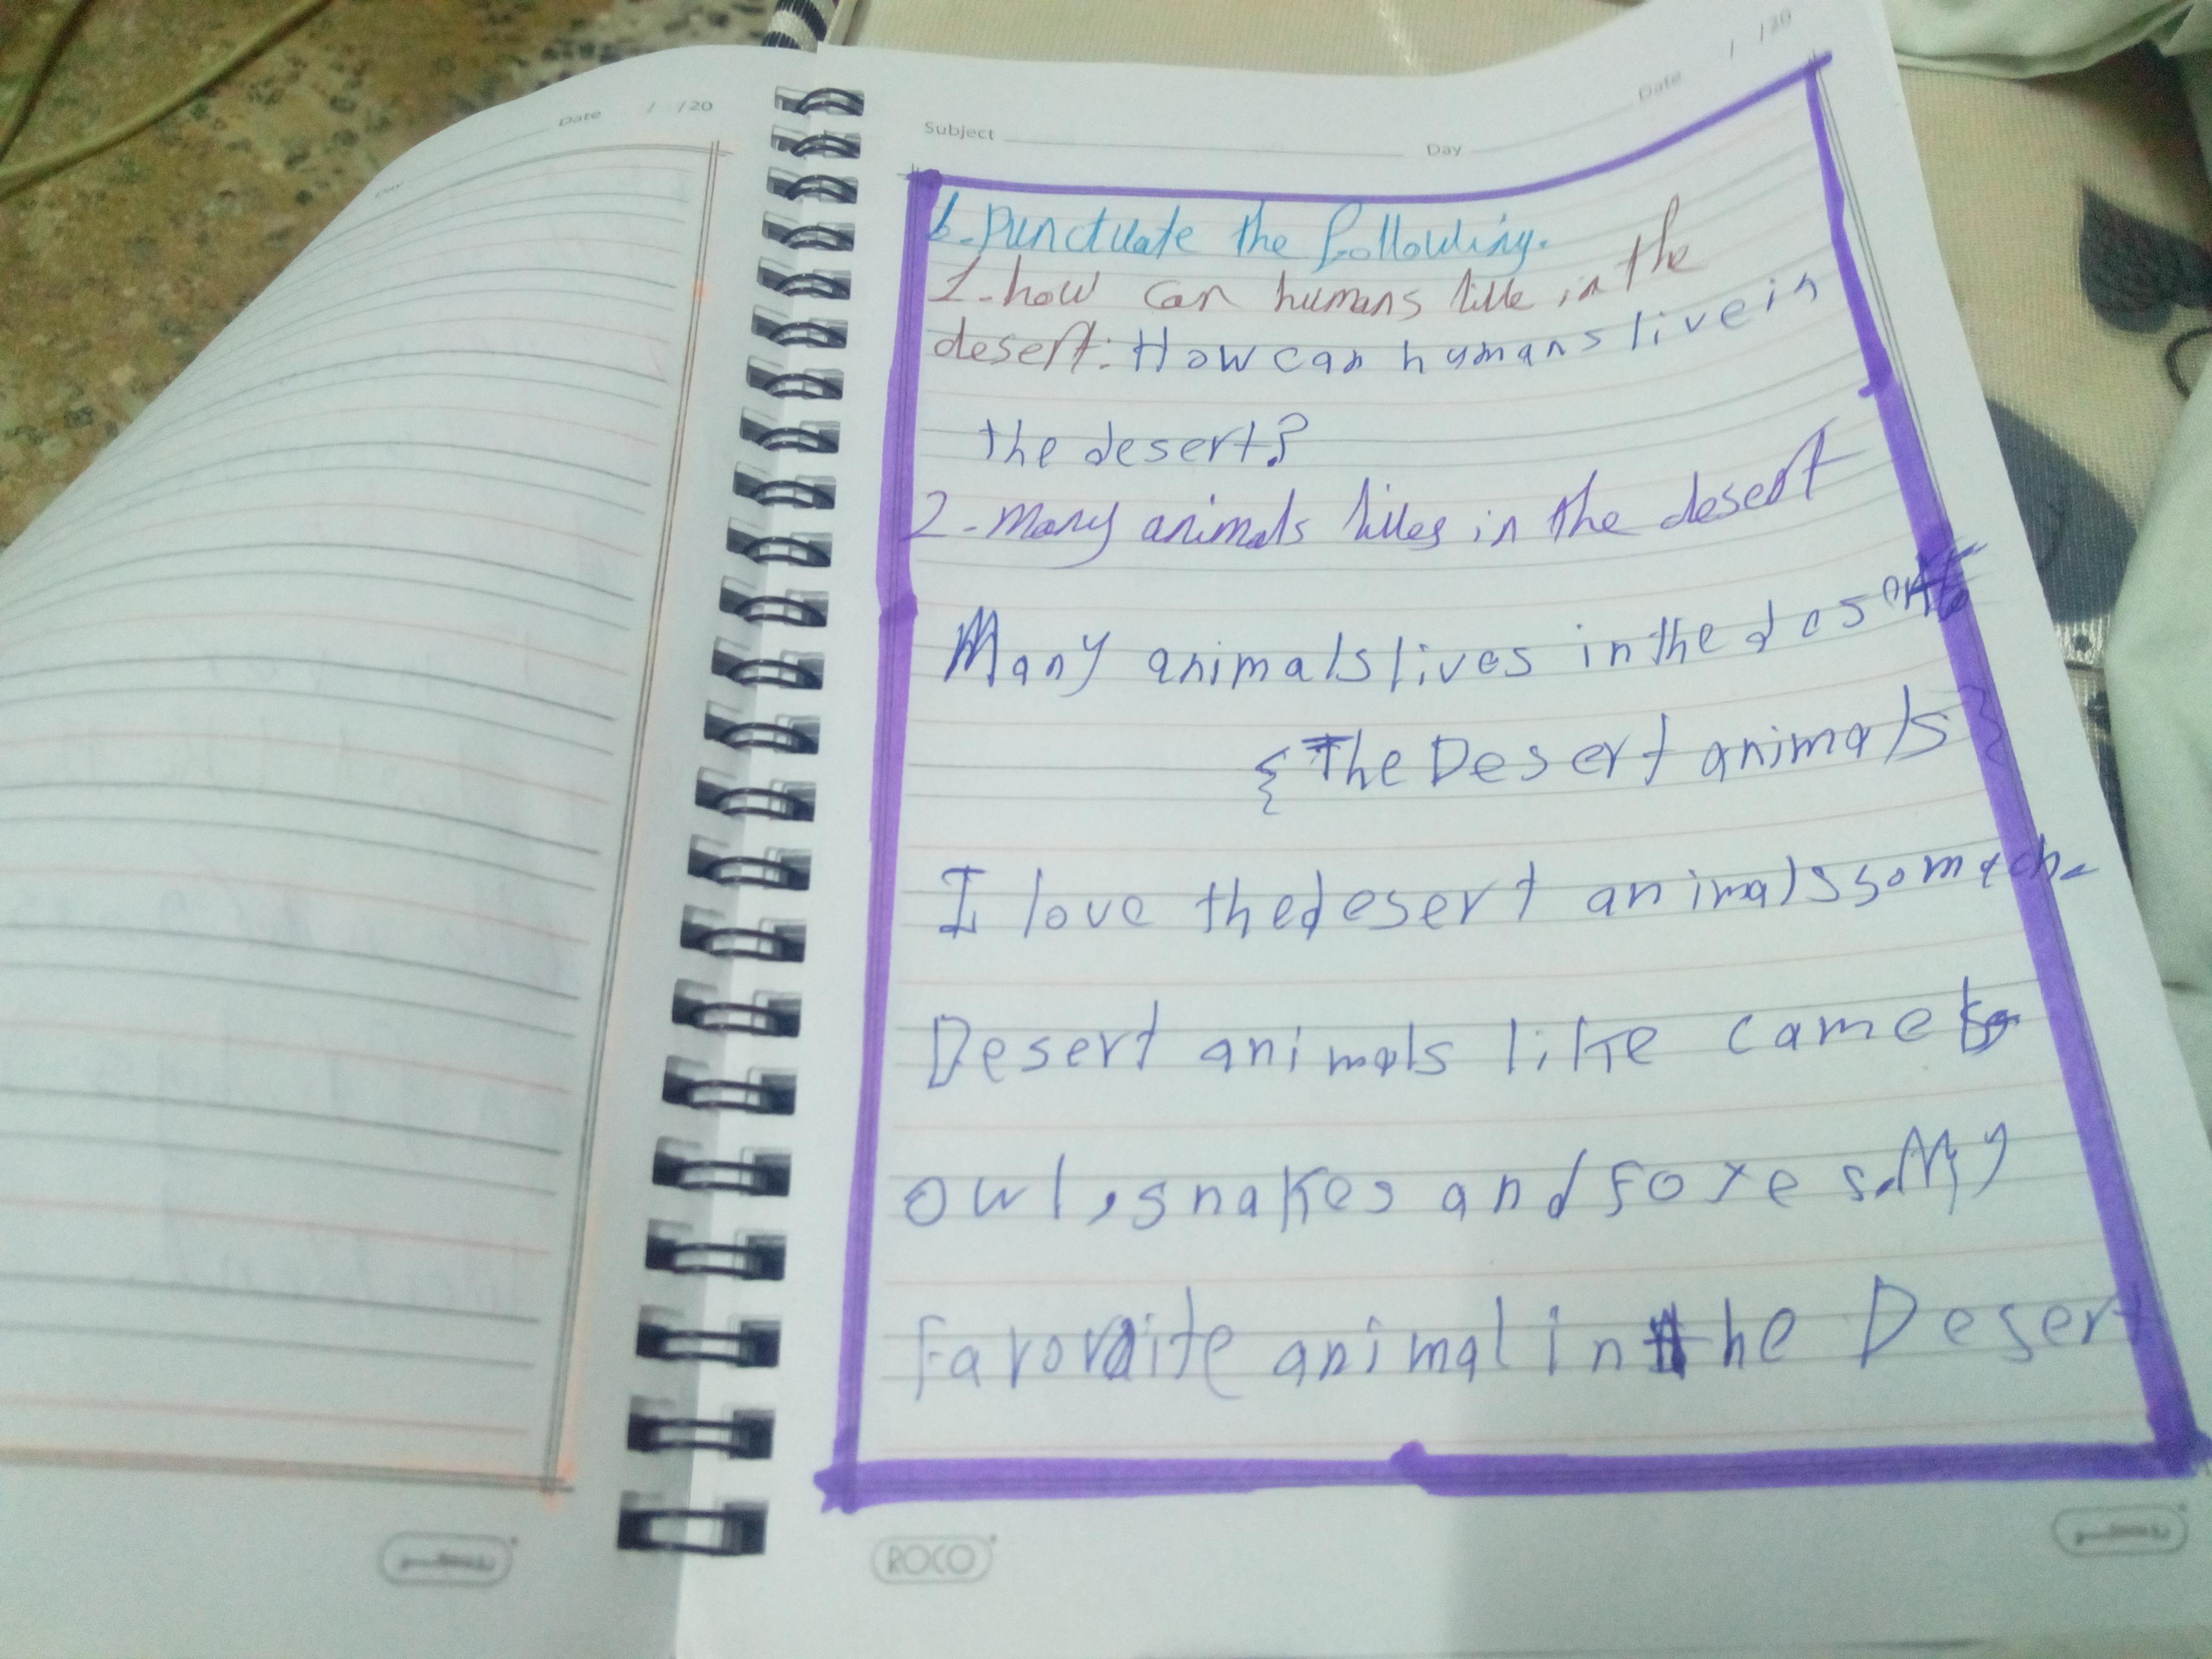 Date / /20
Subject Day Date / /20
6-punctuate the following.
1-how can humans live in the
desert. How can humans live in
the desert?
2-many animals lives in the desert
Many animals lives in the desert
{The Desert animals}
I love the desert animals so mach.
Desert animals like camels,
owl, snakes and foxes. My
Favoraite animal in the Desert
ROCO